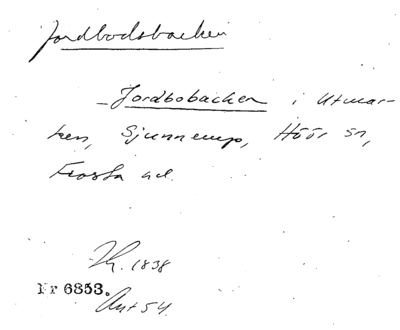 Jordbodsbacken
– Jordbobacken i Utmar-
ken, Sjunnerup, Höör sn,
Frosta hd.
1838
Nr 6853.
Ant 54.